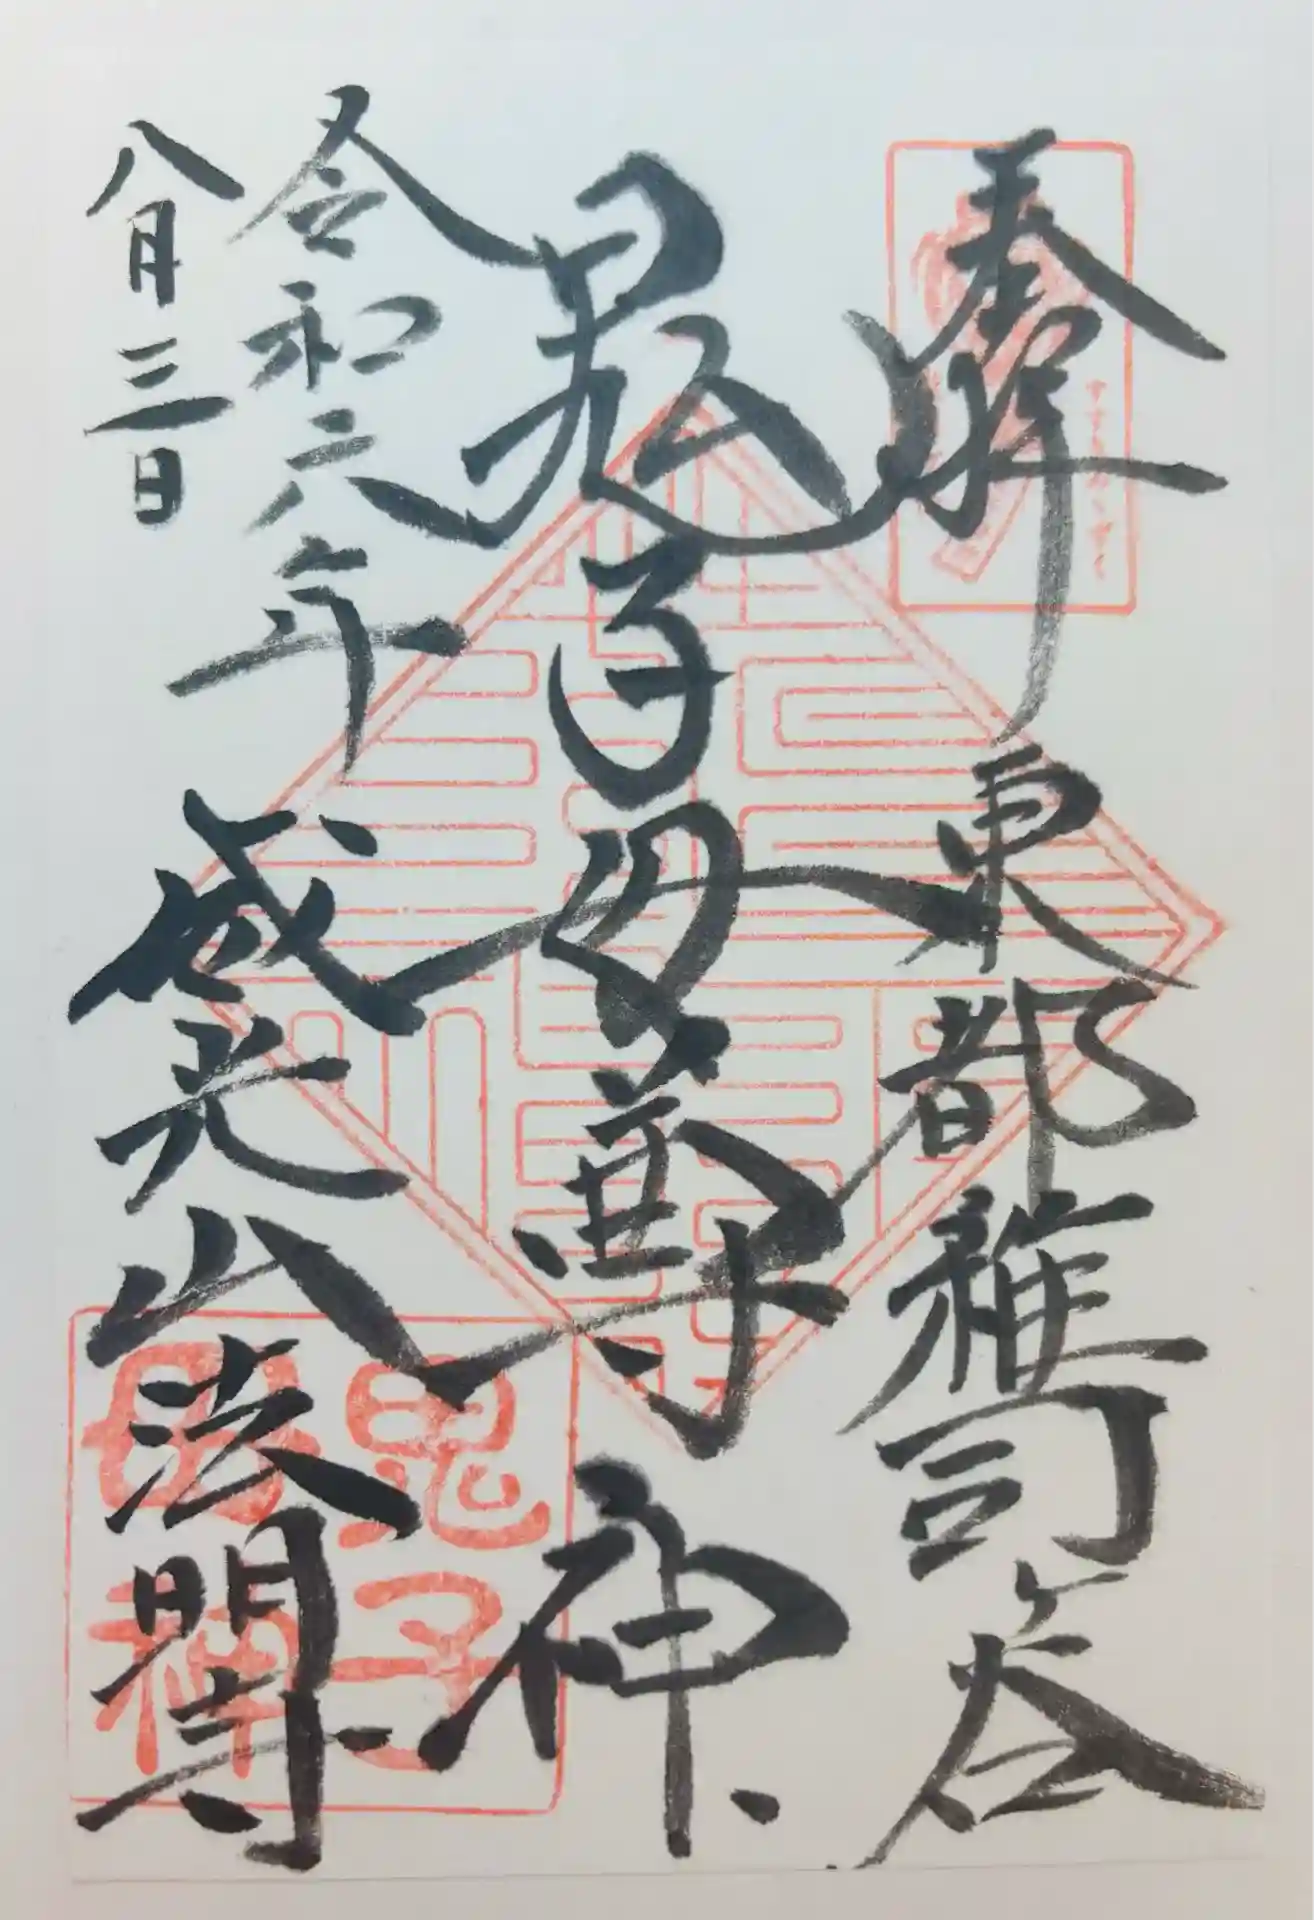 奉拝
東都雑司ヶ谷
鬼子母尊神
令和六年
八月三日
威光山法明寺
鬼子
母神